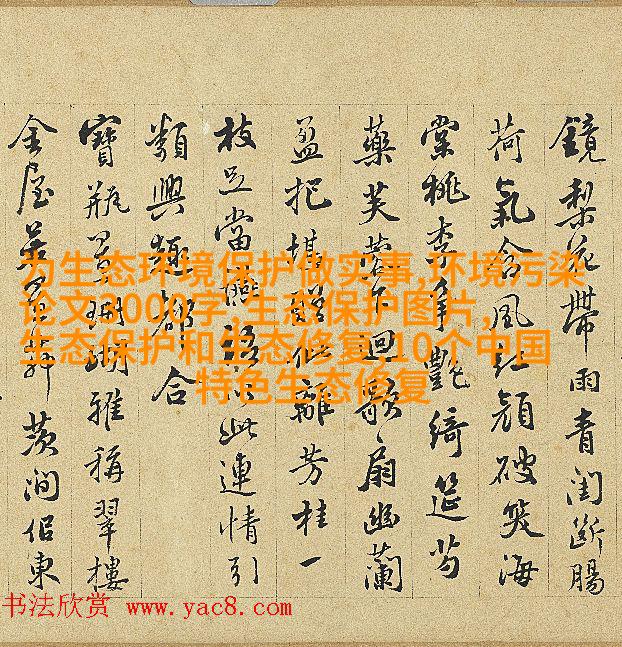 鏡梨花帶雨青閨斷腸
荷氣含風紅顏破笑海
棠桃李爭艷綺筵芍
藥芙蓉迴歌扇幽蘭
盈把堪離芳桂一
枝足當此連情引
類興趣都合
寶瓶珊瑚雅稱翠樓
金屋澗侶東
为生态环境保护做实事,环境污染
论文3000字,生态保护图片,
生态保护和生态修复,10个中国
特色生态修复
书法欣赏 www.yac8.com